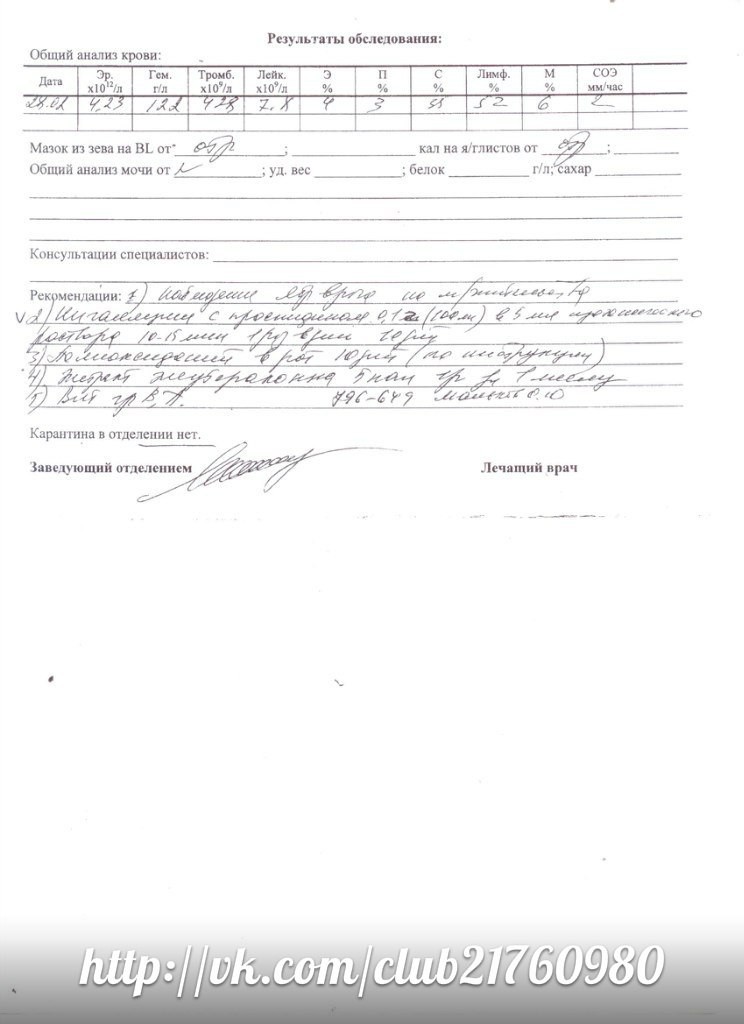 Результаты обследования:
Общий анализ крови:
Дата Эр. х10¹²/л Гем. г/л Тромб. х10⁹/л Лейк. х10⁹/л Э % П % С % Лимф. % М % СОЭ мм/час
28.02 4,23 122 428 7.8 4 3 52 6 2
Мазок из зева на BL от отр ; кал на я/глистов от отр ;
Общий анализ мочи от ; уд. вес ; белок г/л; сахар
Консультации специалистов:
Рекомендации: 1) наблюдение врача по м/жительства
2) Ингаляции с проспидином 0,1 в 5 мл
раствора 10-15 мин 1 раз в день 10 дней
3) в рот 10 дней (по инструкции)
4) Экстракт элеутерококка 1 месяц
5) Вит гр В, А. 796-649
Карантина в отделении нет.
Заведующий отделением Лечащий врач
http://vk.com/club21760980